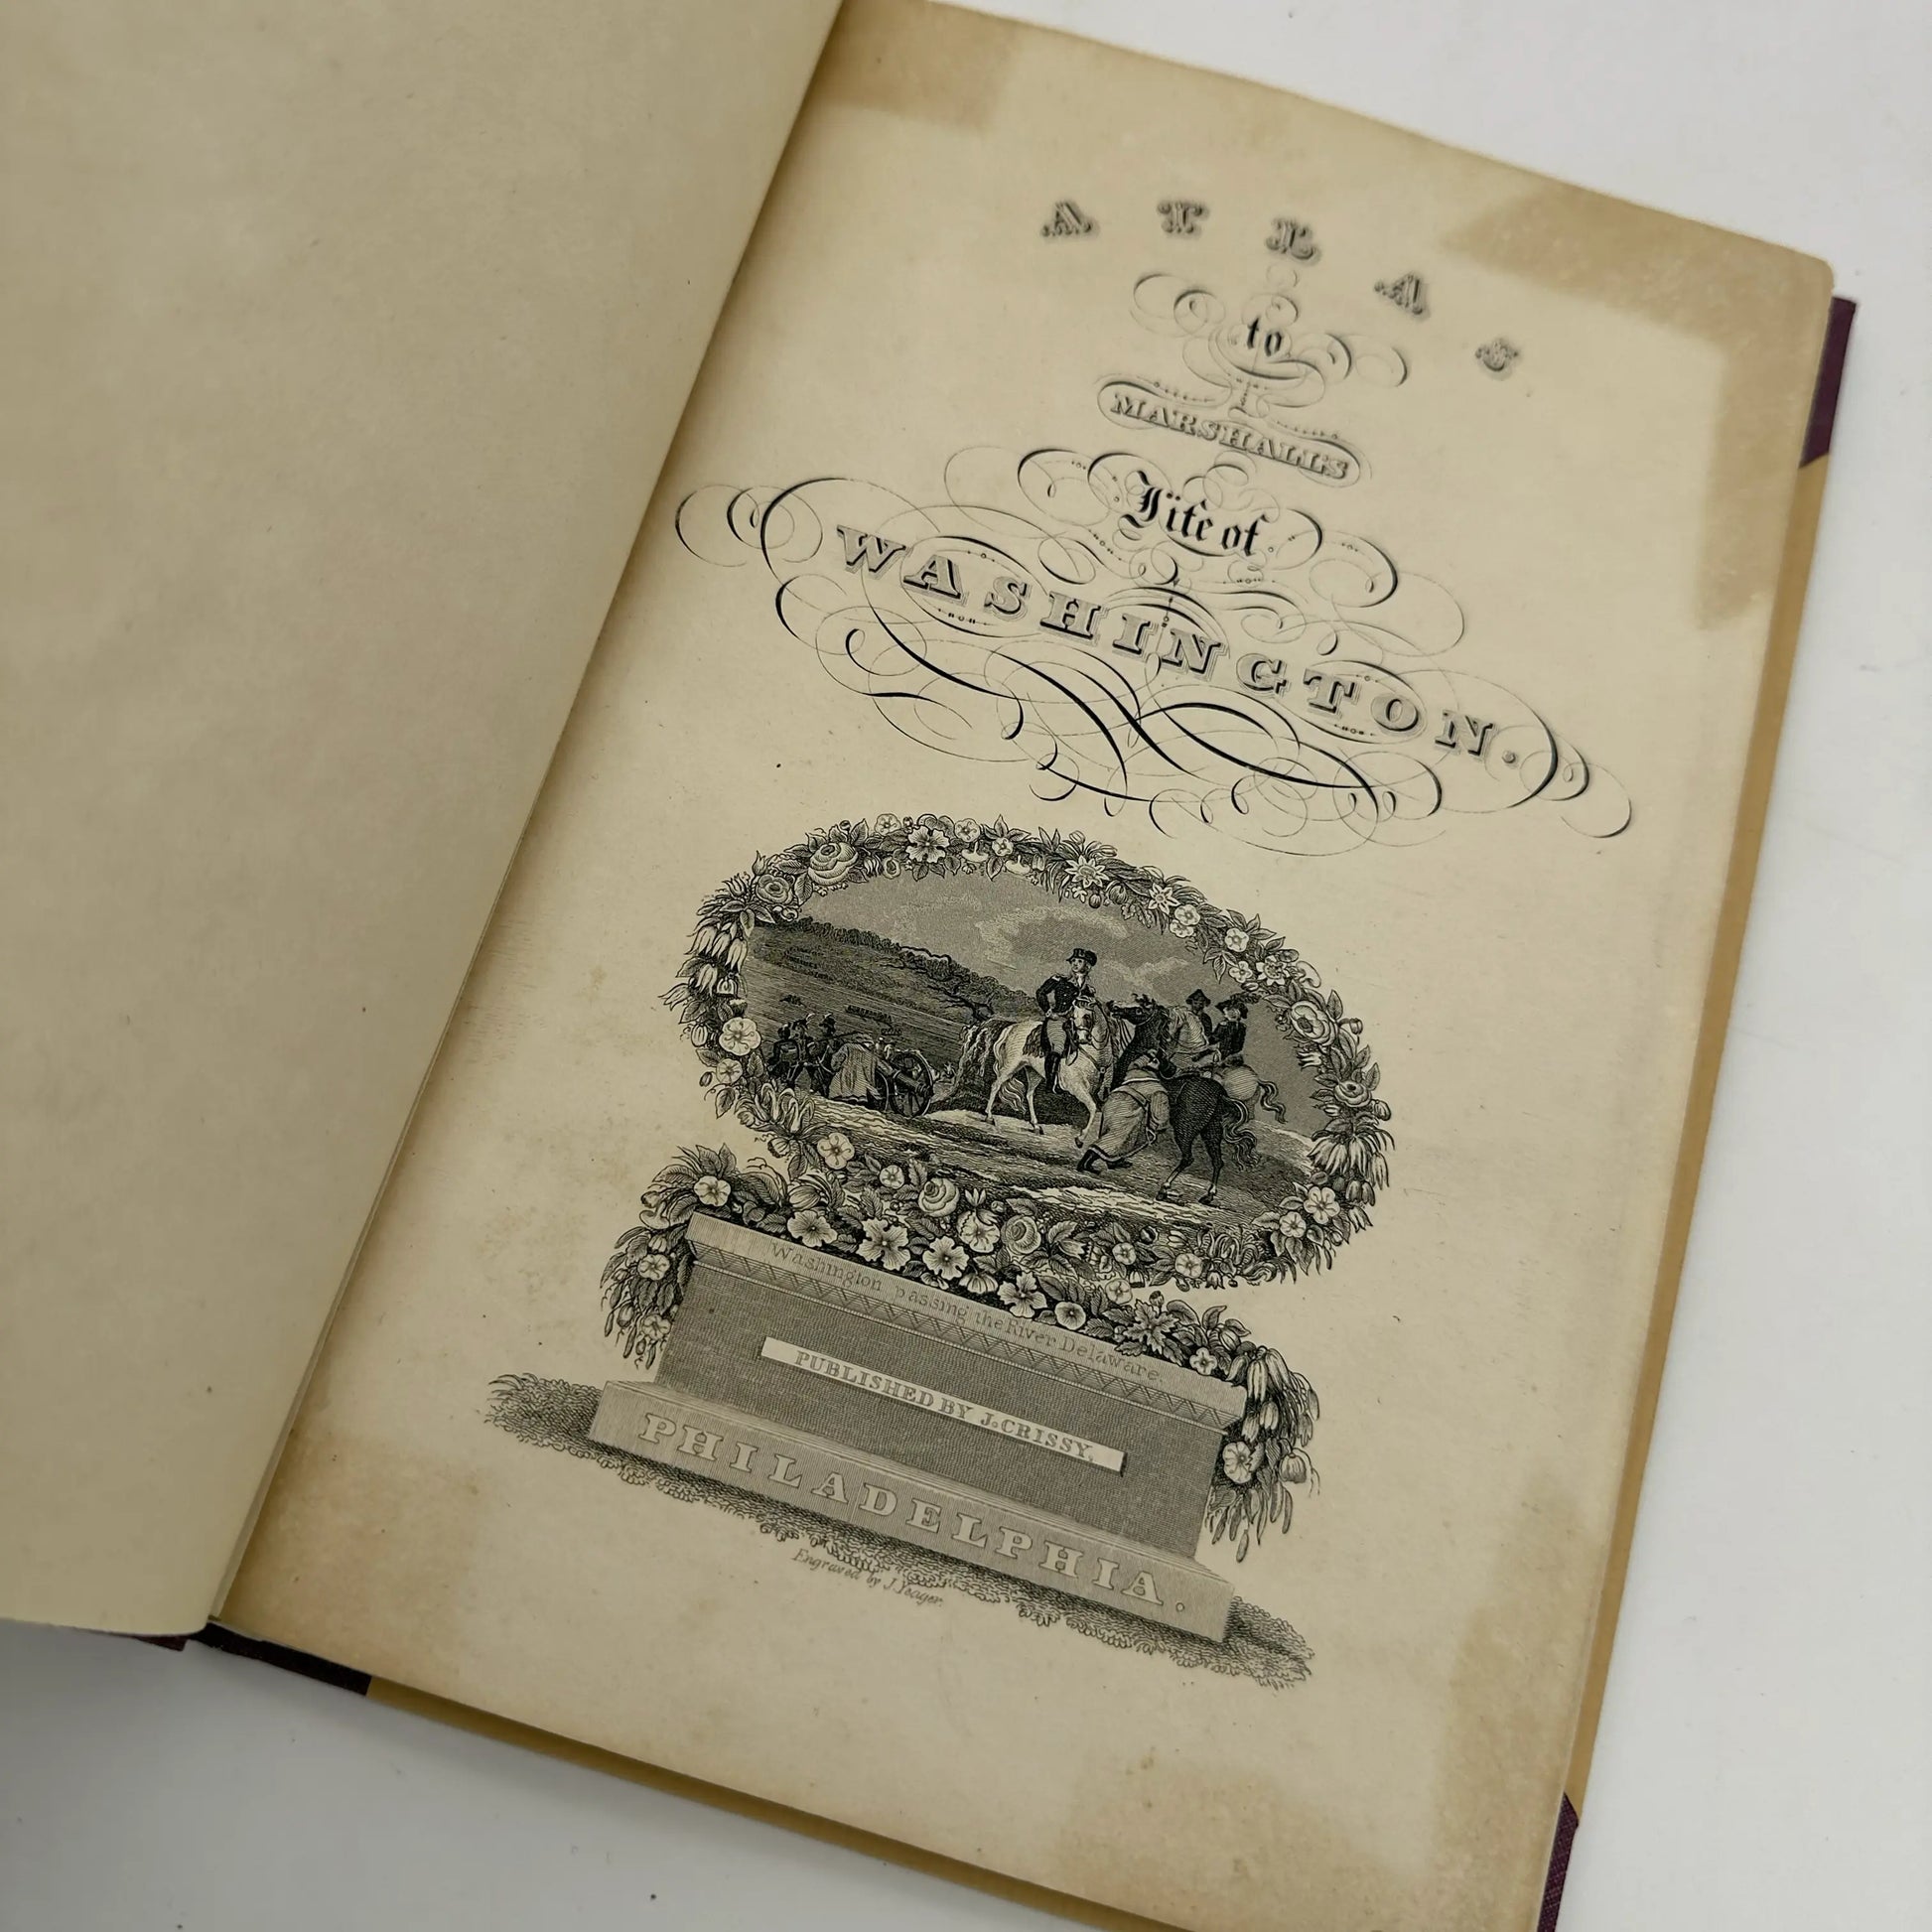 ATLAS
to
MARSHALL'S
Life of
WASHINGTON.
Washington passing the River Delaware.
PUBLISHED BY J. CRISSY,
PHILADELPHIA.
Engraved by J. Yeager.